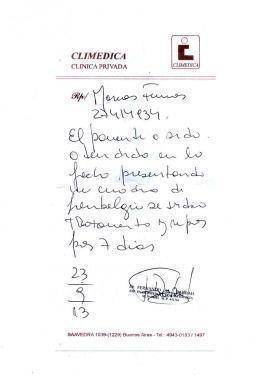 CLIMEDICA
CLINICA PRIVADA
CLIMEDICA
Rp/ Marcos Funes
27414934
El paciente a sido
atendido en la
fecha presentando
un cuadro de
se indica
tratamiento y reposo
por 7 dias
23
9
13
SAAVEDRA 1039-(1229) Buenos Aires - Tel: 4943-0153 / 1497